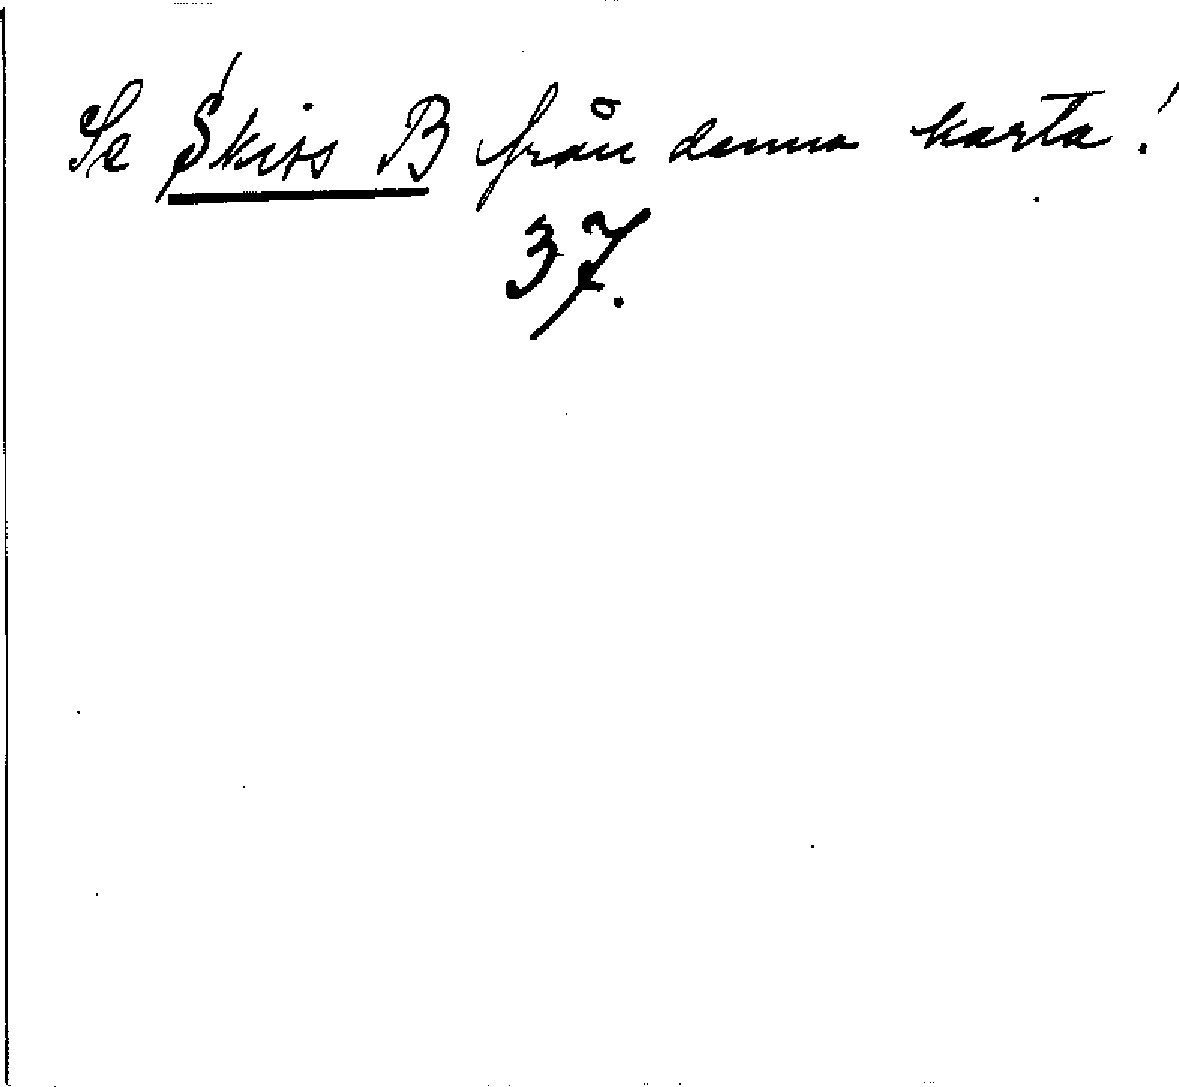 Se Skiss B från denna karta!
37.